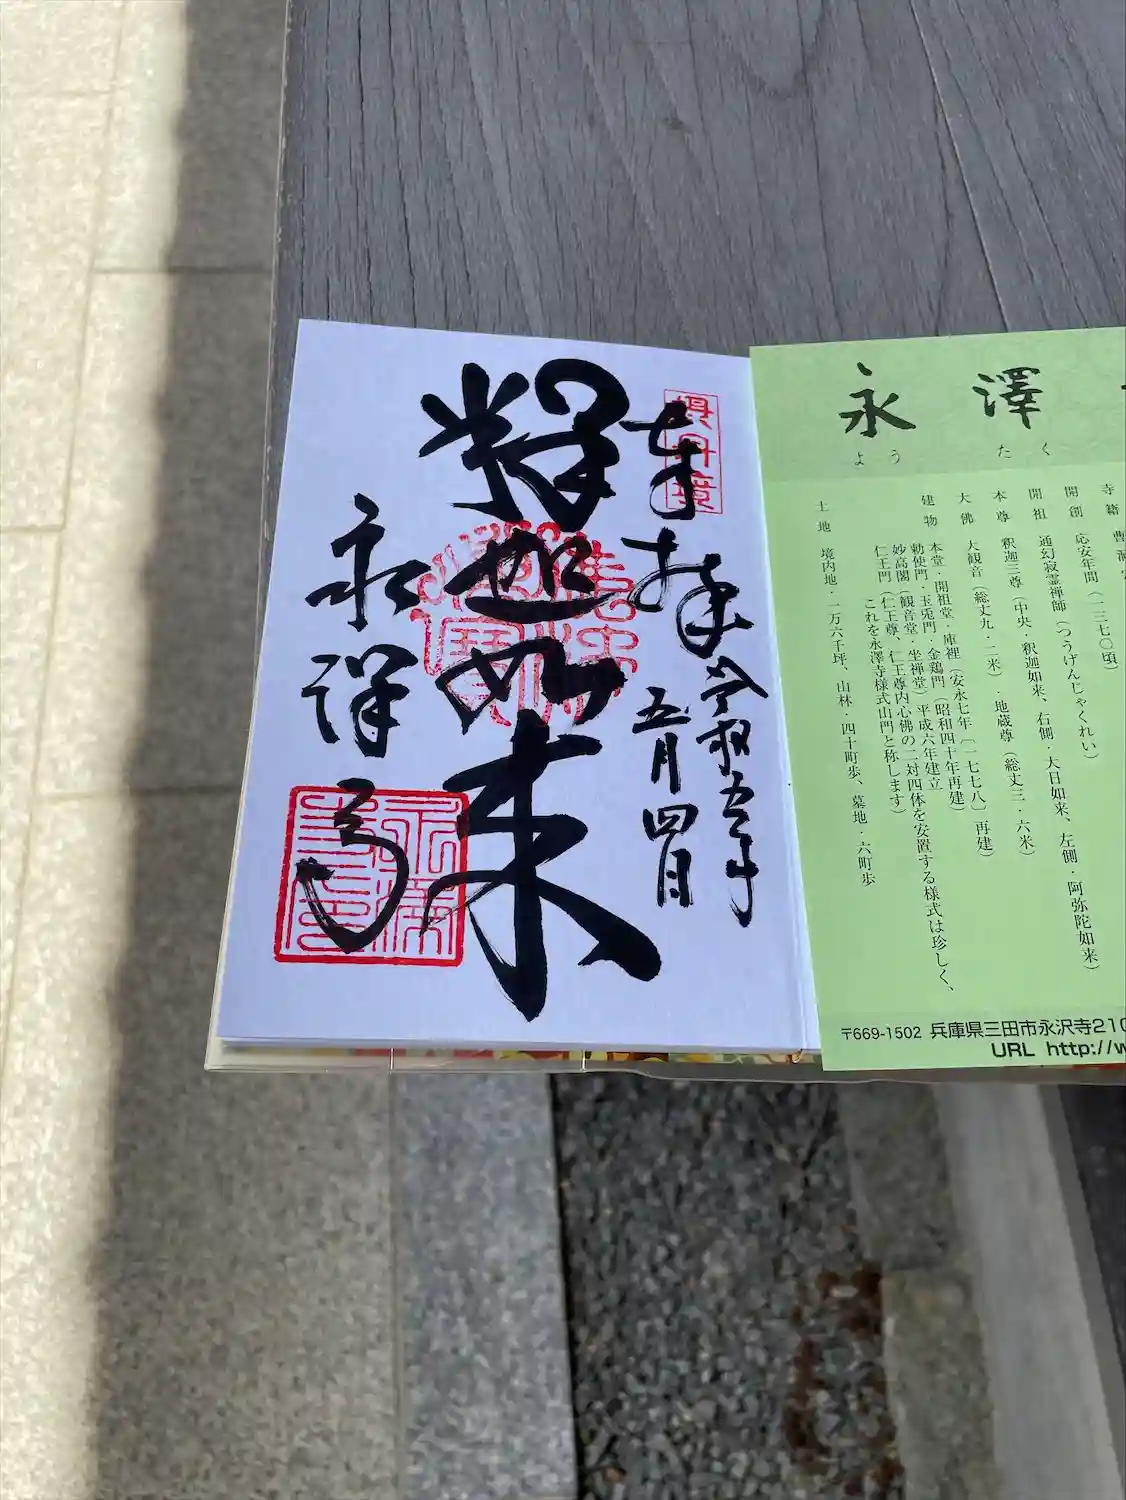 奉拝
令和五年
五月四日
釋迦如来
永澤寺
倶丹境
永澤
よう たく
寺籍 曹洞宗
開創 応安年間(一三七〇頃)
開祖 通幻寂霊禅師(つうげんじゃくれい)
本尊 釈迦三尊(中央・釈迦如来、右側・大日如来、左側・阿弥陀如来)
大佛 大観音(総丈九・二米)・地蔵尊(総丈三・六米)
建物 本堂・開祖堂・庫裡(安永七年〔一七七八〕再建)
勅使門・玉兎門・金鶏門(昭和四十年再建)
妙高閣(観音堂・坐禅堂)平成六年建立
仁王門(仁王尊・仁王尊内心佛の二対四体を安置する様式は珍しく、
これを永澤寺様式山門と称します)
土地 境内地・一万六千坪、山林・四十町歩、墓地・六町歩
〒669-1502 兵庫県三田市永沢寺210
URL http://w